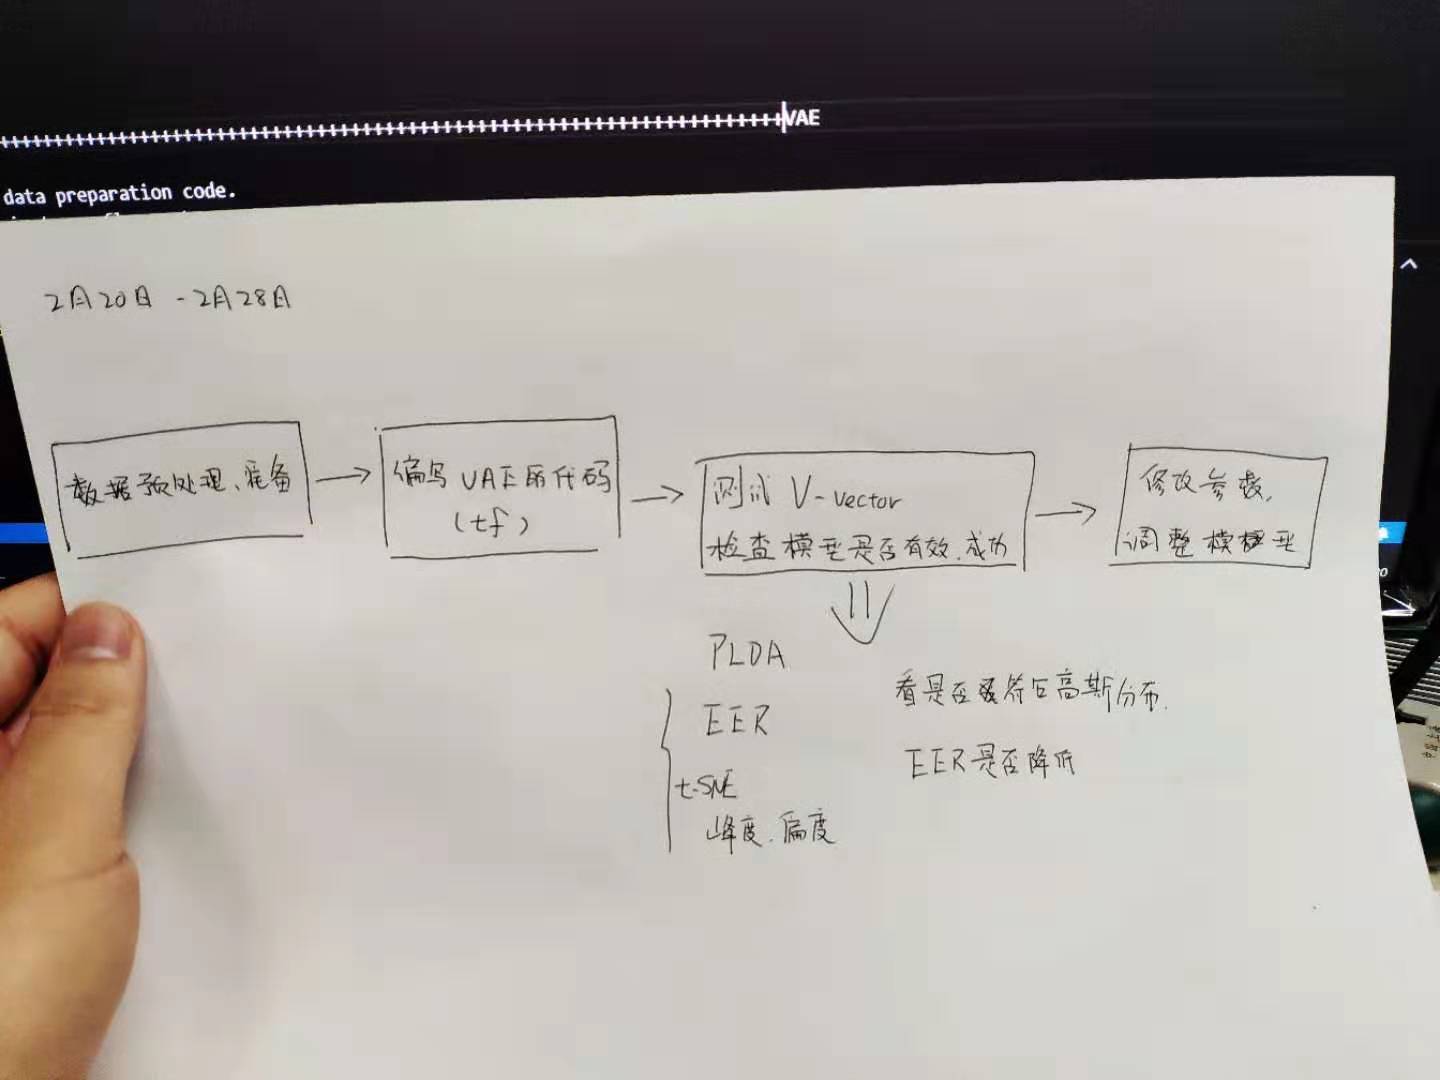 VAE
data preparation code.
2月20日 - 2月28日
数据预处理、准备
编写VAE的代码
(tf)
测试 V-vector
检查模型是否有效、成功
修改参数,
调整模型
PLDA
EER
t-SNE
峰度、偏度
看是否符合高斯分布.
EER是否降低